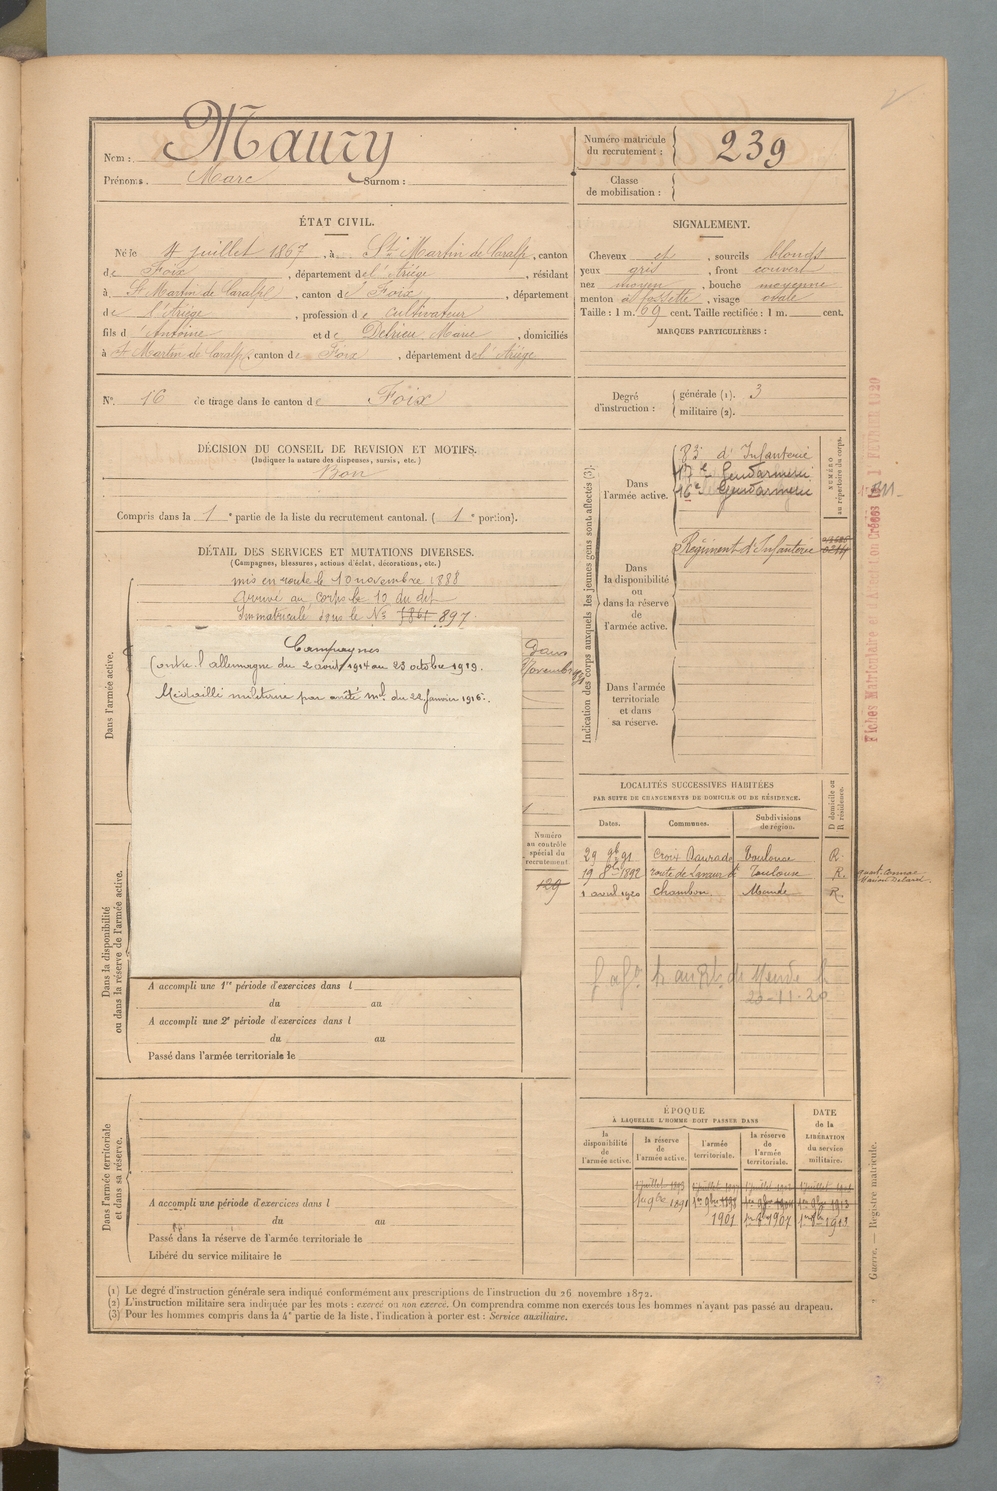 Nom : Maury
Prénoms. Marc Surnom :
Numéro matricule
du recrutement : 239
Classe
de mobilisation :
ÉTAT CIVIL.
Né le 4 juillet 1867, à St Martin de Caralp, canton
de Foix, département de l'Ariège, résidant
à St Martin de Caralp, canton de Foix, département
de l'Ariège, profession de cultivateur
fils d'Antoine et de Delrieu Marie, domiciliés
à St Martin de Caralp, canton de Foix, département de l'Ariège
SIGNALEMENT.
Cheveux et, sourcils blonds
yeux gris, front couvert
nez moyen, bouche moyenne
menton à fossette, visage ovale
Taille : 1 m. 69 cent. Taille rectifiée : 1 m. cent.
MARQUES PARTICULIÈRES :
N°. 16 de tirage dans le canton de Foix
Degré
d'instruction :
générale (1). 3
militaire (2).
DÉCISION DU CONSEIL DE REVISION ET MOTIFS.
(Indiquer la nature des dispenses, sursis, etc.)
Bon
Compris dans la 1e partie de la liste du recrutement cantonal. (1e portion).
DÉTAIL DES SERVICES ET MUTATIONS DIVERSES.
(Campagnes, blessures, actions d'éclat, décorations, etc.)
mis en route le 10 novembre 1888
arrivé au corps le 10 du dit
Immatriculé sous le No 897
Campagnes
Contre l'allemagne du 2 août 1914 au 23 octobre 1919.
Médaillé militaire par arrêté ml du 22 Janvier 1916.
Dans l'armée active.
Dans la disponibilité
ou dans la réserve de l'armée active.
Numéro
au contrôle
spécial du
recrutement
129
A accompli une 1re période d'exercices dans l
du au
A accompli une 2e période d'exercices dans l
du au
Passé dans l'armée territoriale le
Dans l'armée territoriale
et dans sa réserve.
A accompli une période d'exercices dans l
du au
Passé dans la réserve de l'armée territoriale le
Libéré du service militaire le
Indication des corps auxquels les jeunes gens sont affectés (3).
Dans
l'armée active.
83e d'Infanterie
17e Gendarmerie
16e Gendarmerie
NUMÉRO
au répertoire du corps.
Dans
la disponibilité
ou
dans la réserve
de
l'armée active.
Régiment d'Infanterie
Dans l'armée
territoriale
et dans
sa réserve.
LOCALITÉS SUCCESSIVES HABITÉES
PAR SUITE DE CHANGEMENTS DE DOMICILE OU DE RÉSIDENCE.
Dates. Communes. Subdivisions
de région. D domicile ou
R résidence.
29 9bre 91 Croix Daurade Toulouse R.
19 8bre 1892 route de Lavaur Toulouse R.
1 avril 1920 Chambon Mende R.
20-11-20
ÉPOQUE
À LAQUELLE L'HOMME DOIT PASSER DANS
la
disponibilité
de
l'armée active.
la réserve
de
l'armée active.
l'armée
territoriale.
la réserve
de
l'armée
territoriale.
DATE
de la
LIBÉRATION
du service
militaire.
1er 9bre 1891 1er 9bre 1898 1er 9bre 1904 1er 9bre 1913
1901 1er 9bre 1907 1er 9bre 1913
(1) Le degré d'instruction générale sera indiqué conformément aux prescriptions de l'instruction du 26 novembre 1872.
(2) L'instruction militaire sera indiquée par les mots : exercé ou non exercé. On comprendra comme non exercés tous les hommes n'ayant pas passé au drapeau.
(3) Pour les hommes compris dans la 4e partie de la liste, l'indication à porter est : Service auxiliaire.
Guerre. — Registre matricule.